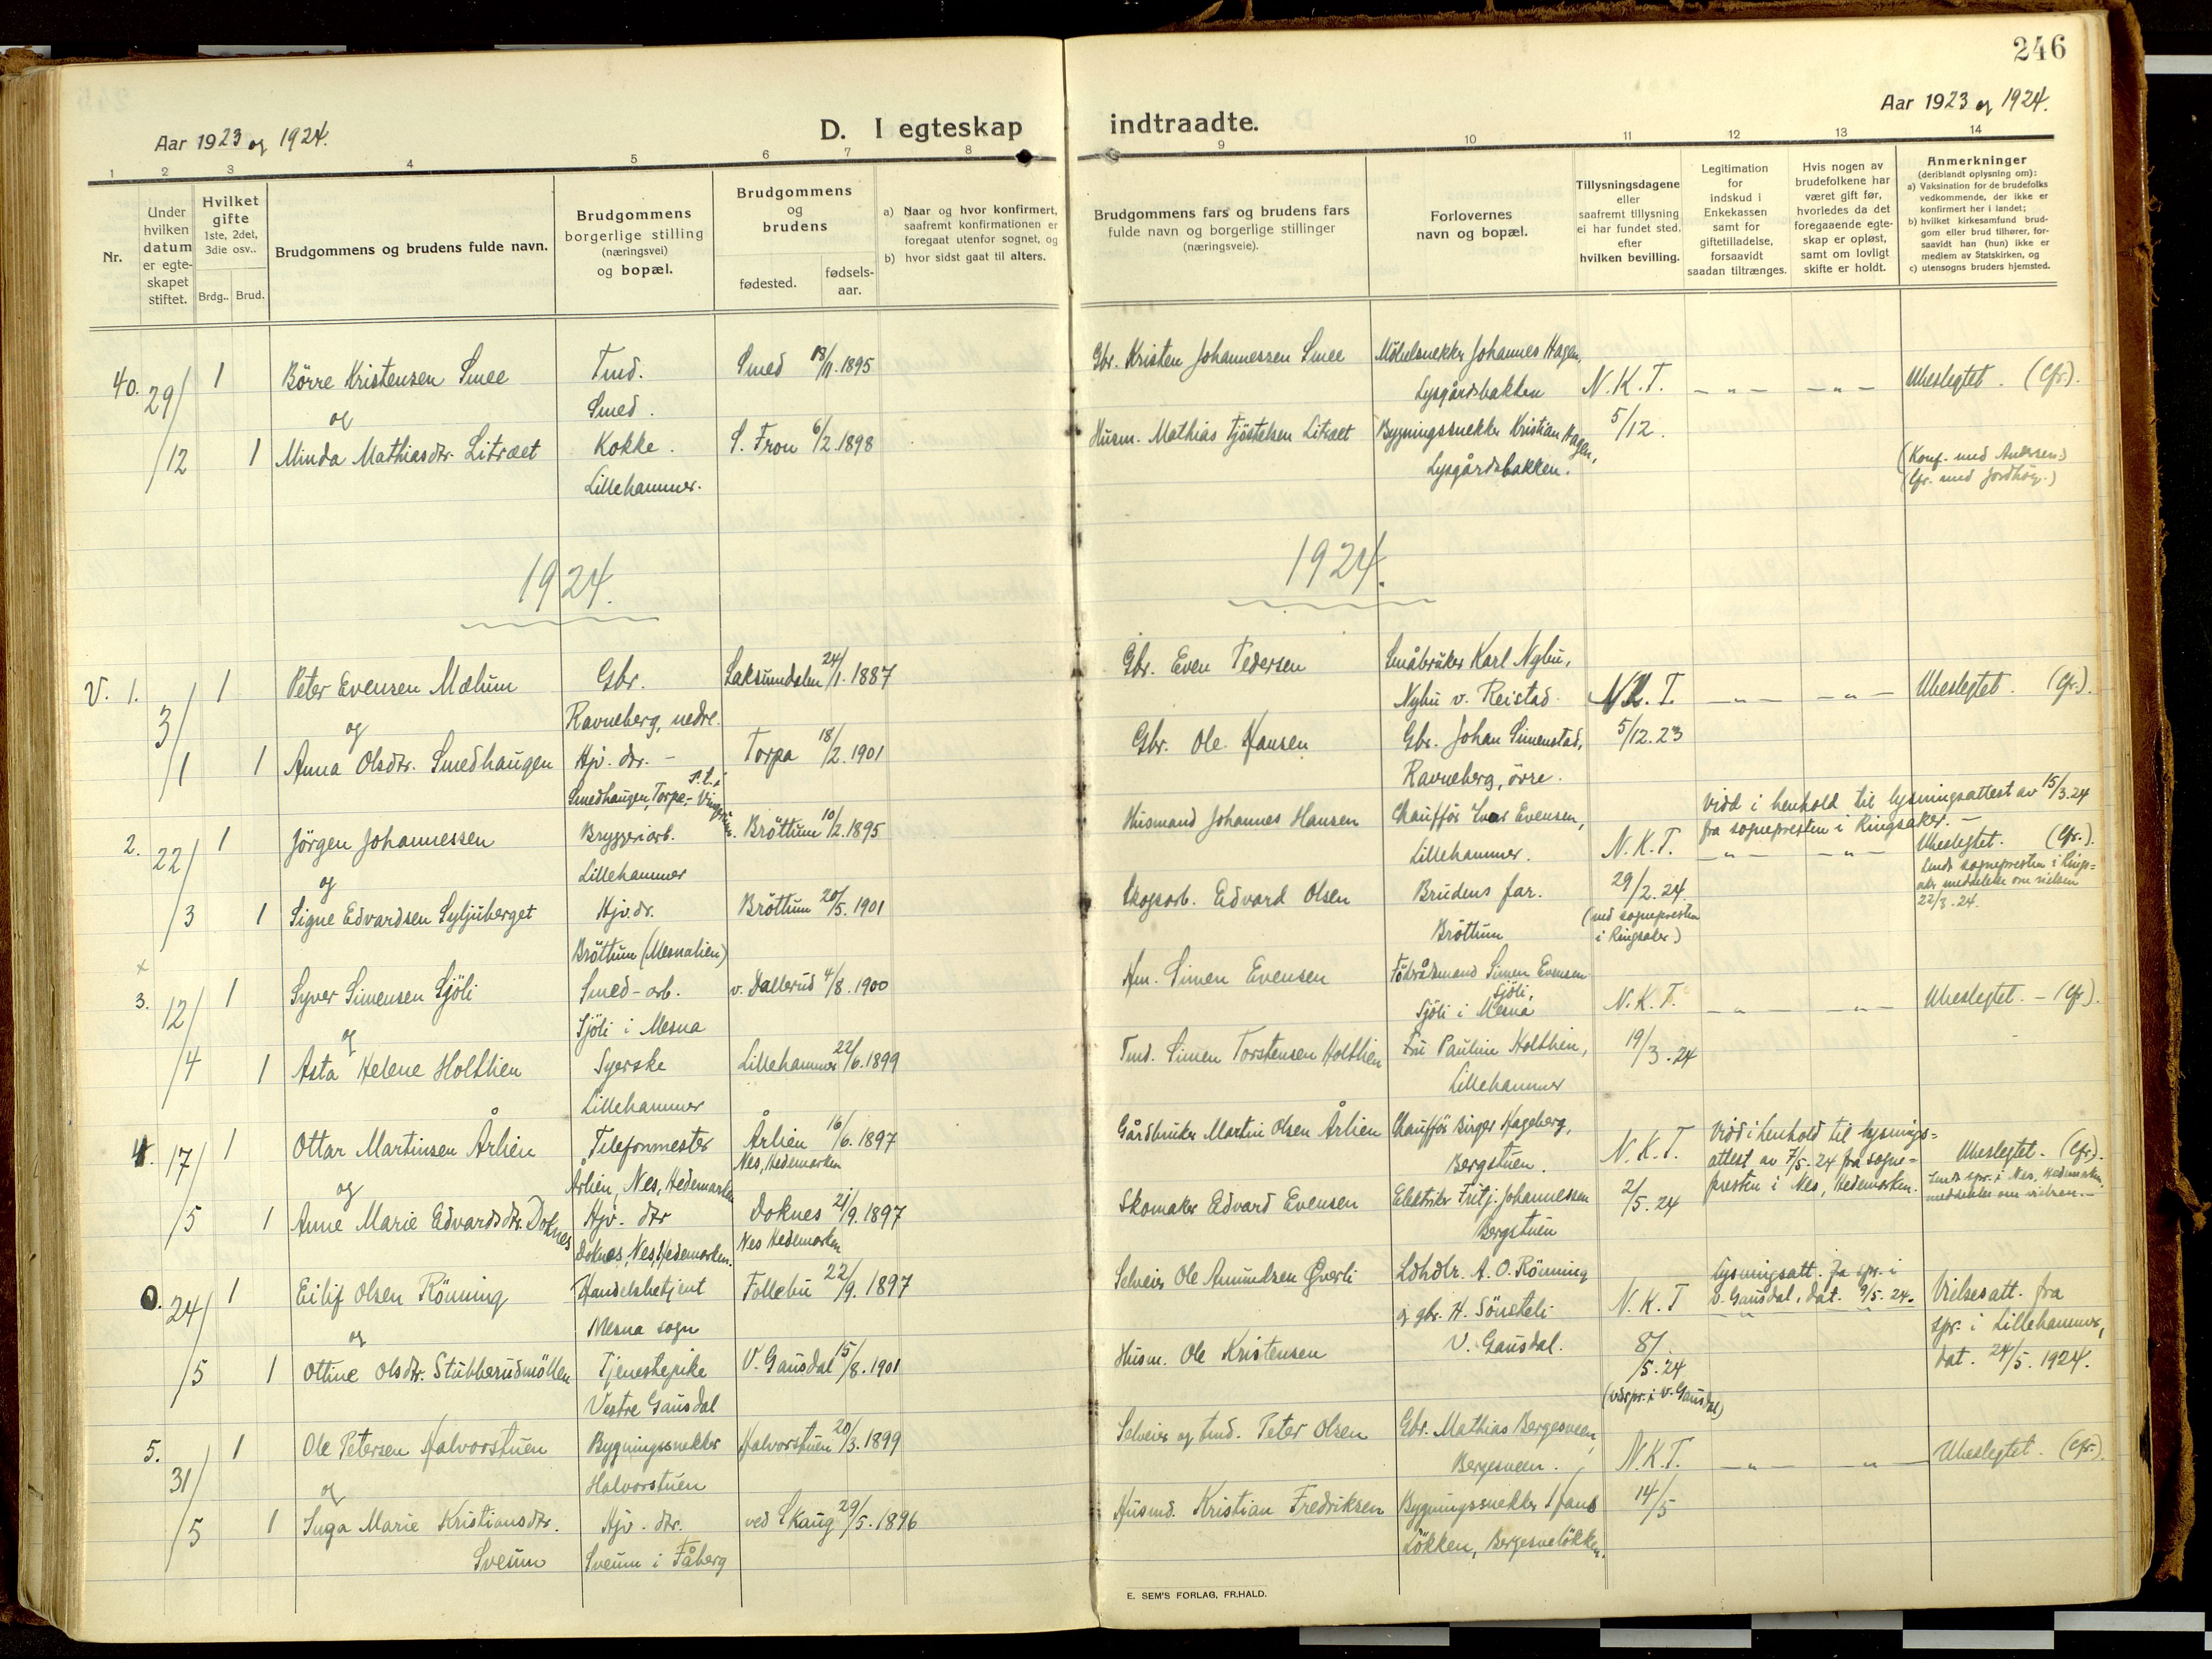 246
Aar 1923 og 1924.
D. I egteskap indtraadte.
Aar 1923 og 1924.
1 2 3 4 5 6 7 8 9 10 11 12 13 14
Nr.
Under hvilken datum er egte-skapet stiftet.
Hvilket gifte 1ste, 2det, 3die osv..
Brdg.. Brud.
Brudgommens og brudens fulde navn.
Brudgommens borgerlige stilling (næringsvei) og bopæl.
Brudgommens og brudens
fødested.
fødsels-aar.
a) Naar og hvor konfirmert, saafremt konfirmationen er foregaat utenfor sognet, og
b) hvor sidst gaat til alters.
Brudgommens fars og brudens fars fulde navn og borgerlige stillinger (næringsveie).
Forlovernes navn og bopæl.
Tillysningsdagene eller saafremt tillysning ei har fundet sted, efter hvilken bevilling.
Legitimation for indskud i Enkekassen samt for giftetilladelse, forsaavidt saadan tiltrænges.
Hvis nogen av brudefolkene har været gift før, hvorledes da det foregaaende egte-skap er opløst, samt om lovligt skifte er holdt.
Anmerkninger (deriblandt oplysning om):
a) Vaksination for de brudefolks vedkommende, der ikke er konfirmert her i landet;
b) hvilket kirkesamfund brud-gom eller brud tilhører, for-saavidt han (hun) ikke er medlem av Statskirken, og
c) utensogns bruders hjemsted.
40. 29/ 1 Börre Kristensen Smee Tmd. Smed 18/11.1895 Gbr. Kristen Johannessen Smee Möbelsnekker Johannes Hagen,
og Smed. Lysgårdsbakken N.K.T. — " — — " — Ubeslegtet. (Cfr).
/12 1 Minda Mathiasdtr. Litræet Kokke. S. Fron 6/2.1898 Husm. Mathias Tjöstelsen Litræet Bygningssnekker Kristian Hagen, 5/12.
Lillehammer. Lysgårdsbakken. (Konf. med Anderssen)
(Cfr. med Jordhöy.)
1924. 1924.
V. 1. 3/ 1 Peter Evensen Mælum Gbr. Saksumdalen 24/1.1887 Gbr. Even Pedersen Småbruker Karl Nybu,
og Ravneberg, nedre. Nybu v. Reistad. N.K.T. — " — — " — Ubeslegtet. (Cfr).
/1 1 Anna Olsdtr. Smedhaugen Hjv. dtr. – Torpa 18/2.1901 Gbr. Ole Hansen Gbr. Johan Simenstad, 5/12.23
Smedhaugen, Torpa, – p.t. i Vingrom. Ravneberg, övre.
2. 22/ 1 Jörgen Johannessen Bryggeriarb. Bröttum 10/2.1895 Husmand Johannes Hansen Chaufför Ivar Evensen,
Viod i henhold til lysningsattest av 15/3.24
fra sognepresten i Ringsaker. –
og Lillehammer Lillehammer. N.K.T. — " — — " — Ubeslegtet. (Cfr.).
/3 1 Signe Edvardsen Syljuberget Hjv. dr. Bröttum 20/5.1901 Skogsarb. Edvard Olsen Brudens far. 29/2.24.
Bröttum (Mesnalien) Bröttum (ved sognepresten i Ringsaker)
Sendt sognepresten i Rings=aker meddelelse om vielsen 22/3.24.
x
3. 12/ 1 Syver Simensen Sjöli Smed-arb. v. Dallerud 4/8.1900 Hm. Simen Evensen Föderådsmand Simen Evensen Sjöli,
og Sjöli i Mesna Sjöli i Mesna N.K.T. — " — — " — Ubeslegtet. – (Cfr).
/4 1 Asta Helene Holthien Syerske Lillehammer 22/6.1899 Tmd. Simen Torstensen Holthien Fru Pauline Holthien, 19/3.24
Lillehammer Lillehammer
4. 17/ 1 Ottar Martinsen Årlien Telefonmester Årlien 16/6.1897 Gårdbruker Martin Olsen Årlien Chaufför Birger Hageberg,
og Årlien, Nes, Hedemarken Nes, Hedemarken Bergstuen. N.K.T. Viod i henhold til lysnings=attest av 7/5.24 fra sogne=presten i Nes, Hedemarken. Ubeslegtet. (Cfr).
/5 1 Anne Marie Edvardsdtr. Doknes Hjv. dtr Doknes 21/9.1897 Skomaker Edvard Evensen Elektriker Fritj. Johannessen 2/5.24
Doknes, Nes, Hedemarken. Nes Hedemarken Bergstuen
Sendt spr. i Nes, Hedemarken, meddelelse om vielsen. –
0. 24/ 1 Eilif Olsen Rönning Handelsbetjent Follebu 22/9.1897 Selveier Ole Amundsen Øverli Ldhdlr. A. O. Rönning
og Mesna sogn og gbr. H. Sönsteli N.K.T Lysningsatt. fra spr. i V. Gausdal, dat. 9/5.24. Vielsesatt. fra
spr. i Lillehammer,
/5 1 Ottine Olsdtr. Stubberudmöllen Tjenestepike V. Gausdal 15/8.1901 Husm. Ole Kristensen V. Gausdal. 8/5.24 dat. 24/5.1924.
Vestre Gausdal (ved spr. i V. Gausdal)
5. 31/ 1 Ole Petersen Halvorstuen Bygningssnekker Halvorstuen 20/3.1899 Selveier og tmd. Peter Olsen Gbr. Mathias Bergesveen,
og Halvorstuen Bergesveen. N.K.T. — " — — " — Ubeslegtet. (Cfr.)
/5 1 Inga Marie Kristiansdtr. Hjv. dtr. ved Skaug 29/5.1896 Husmd. Kristian Fredriksen Bygningssnekker Hans 14/5
Sveum Sveum i Fåberg Lökken, Bergesvelökken.
E. SEM'S FORLAG, FR.HALD.